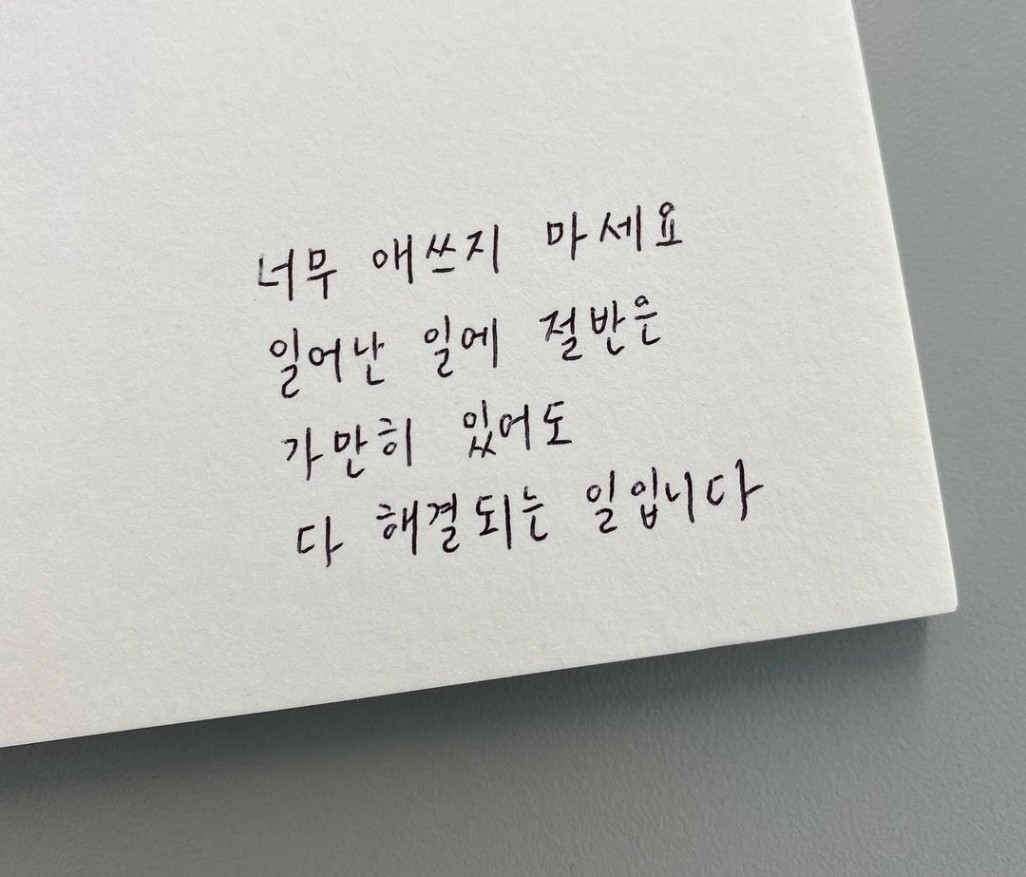 너무 애쓰지 마세요
일어난 일에 절반은
가만히 있어도
다 해결되는 일입니다